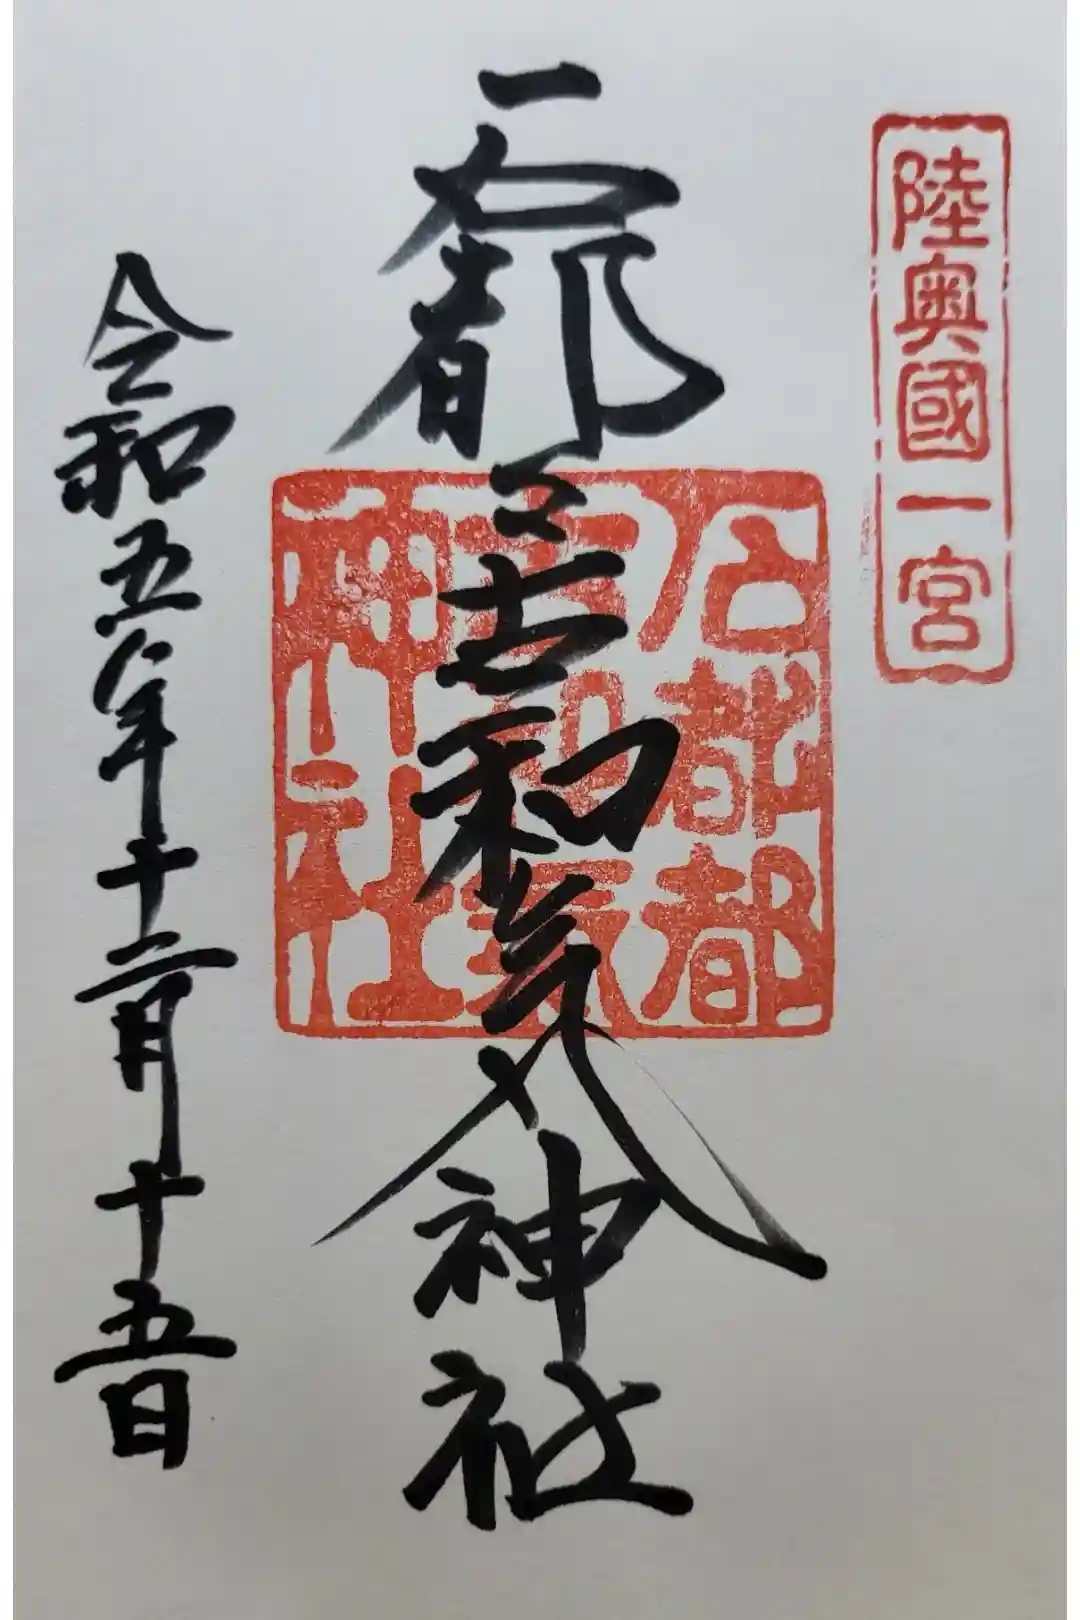 陸奥國一宮
石都都古和気神社
石都都古和氣神社
令和五年十二月十五日